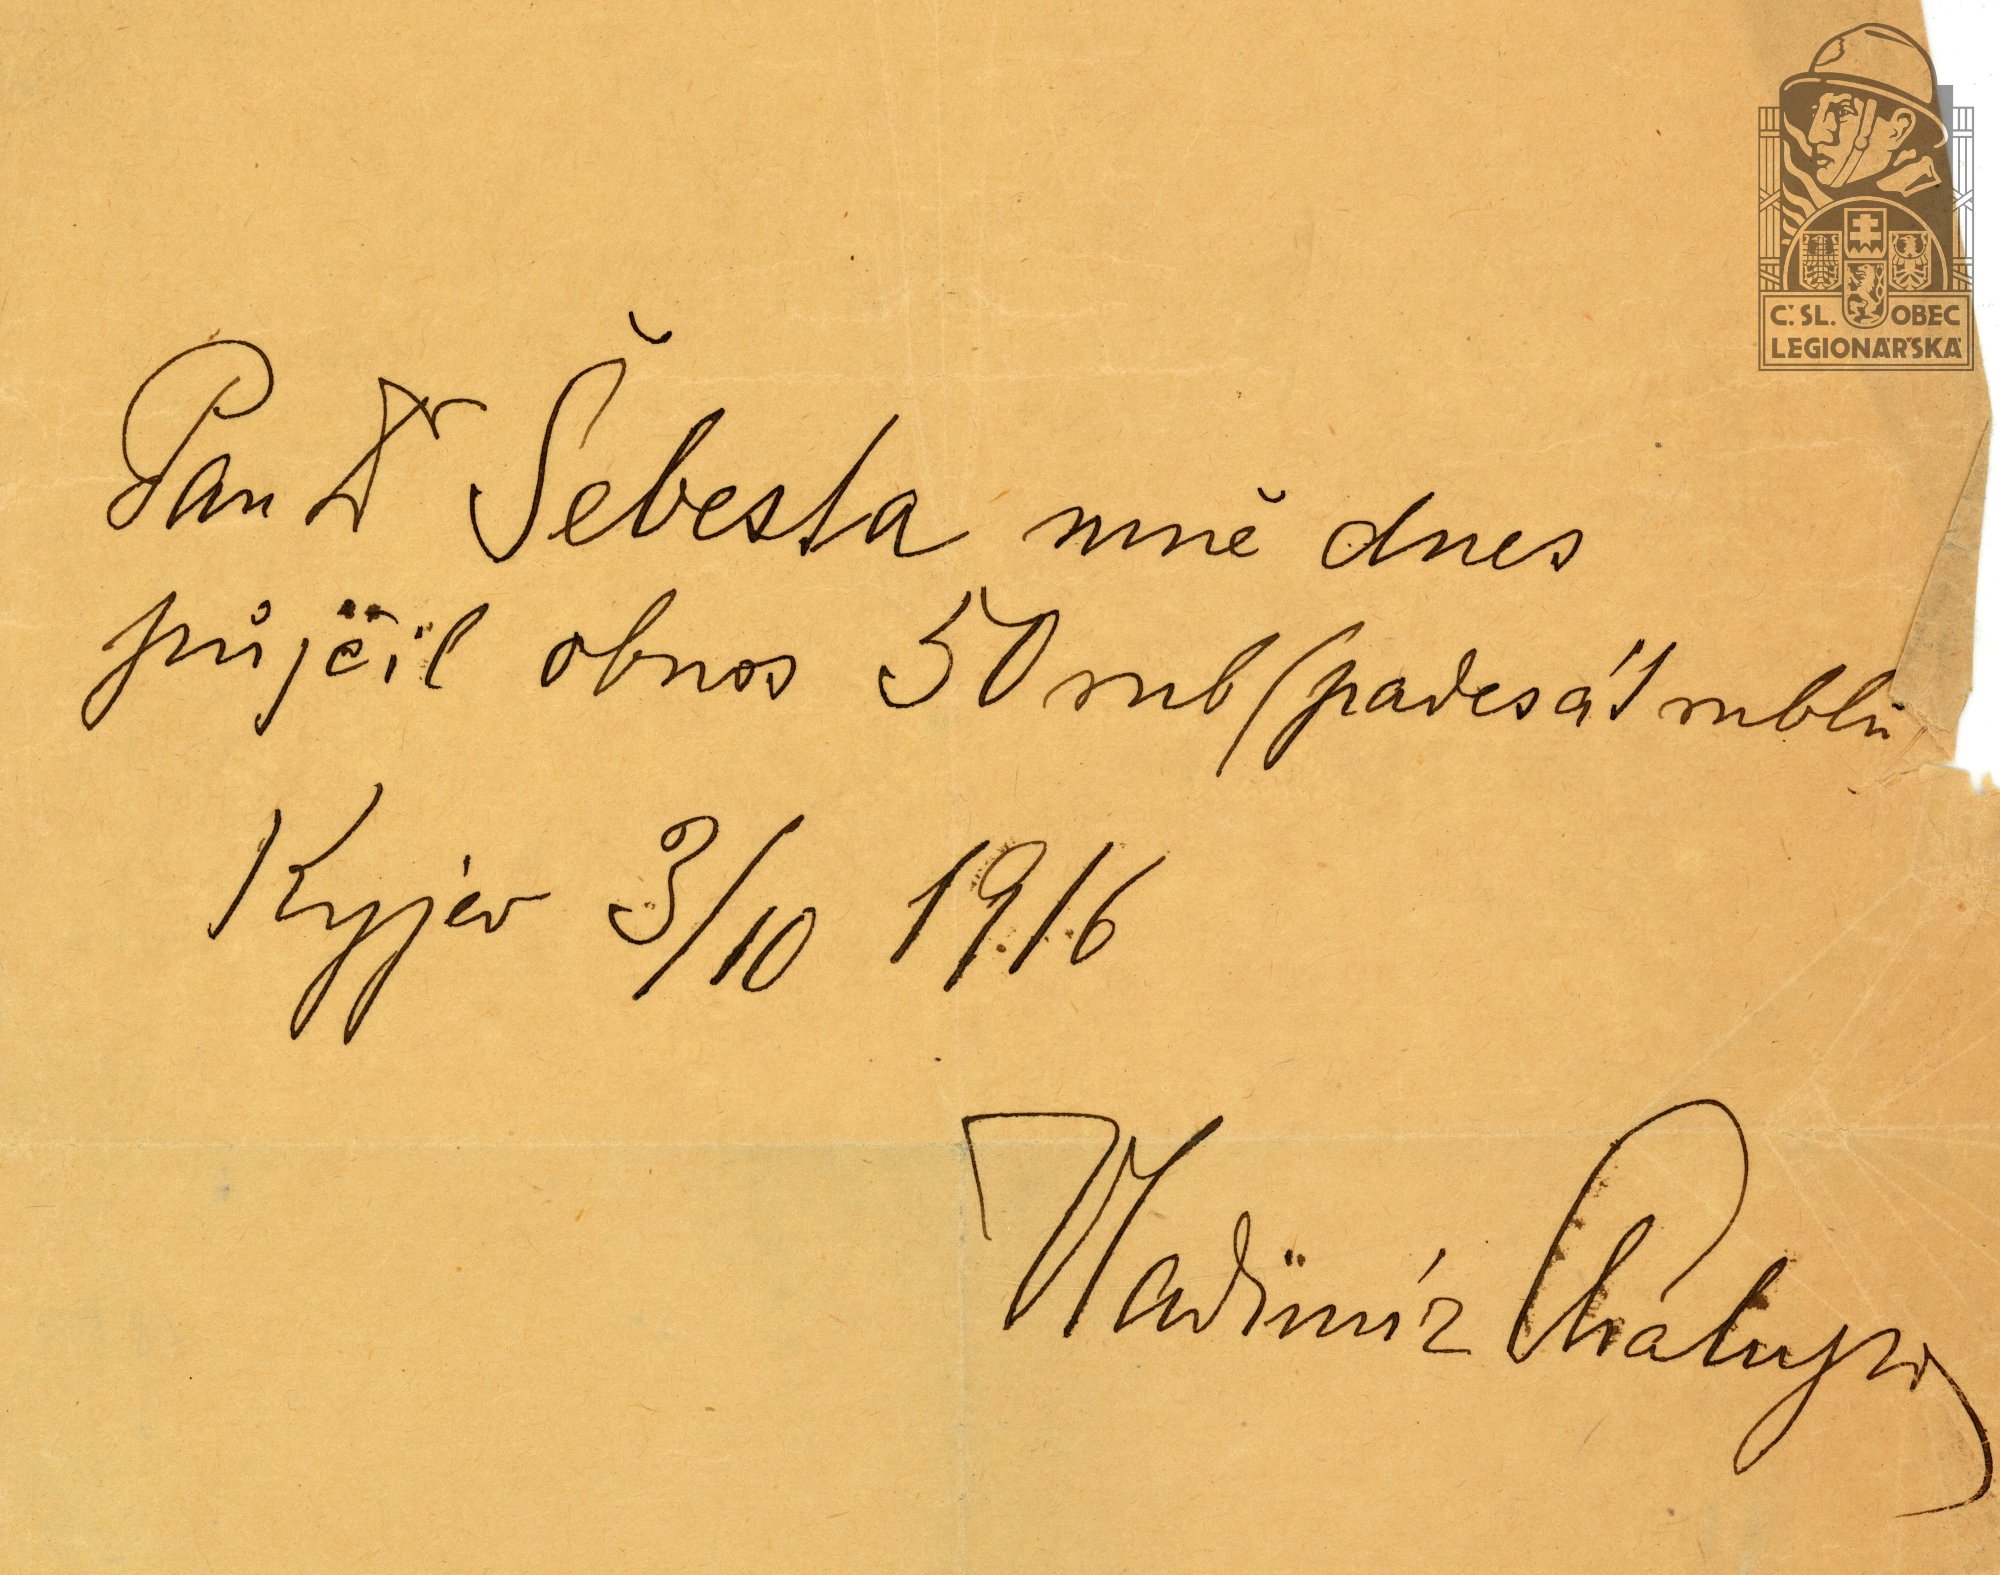 C. SL. OBEC
LEGIONÁŘSKÁ
Pan Dr Šebesta mně dnes
půjčil obnos 50 rub (padesát rublů
Kyjev 3/10 1916
Vladimír Chalupa